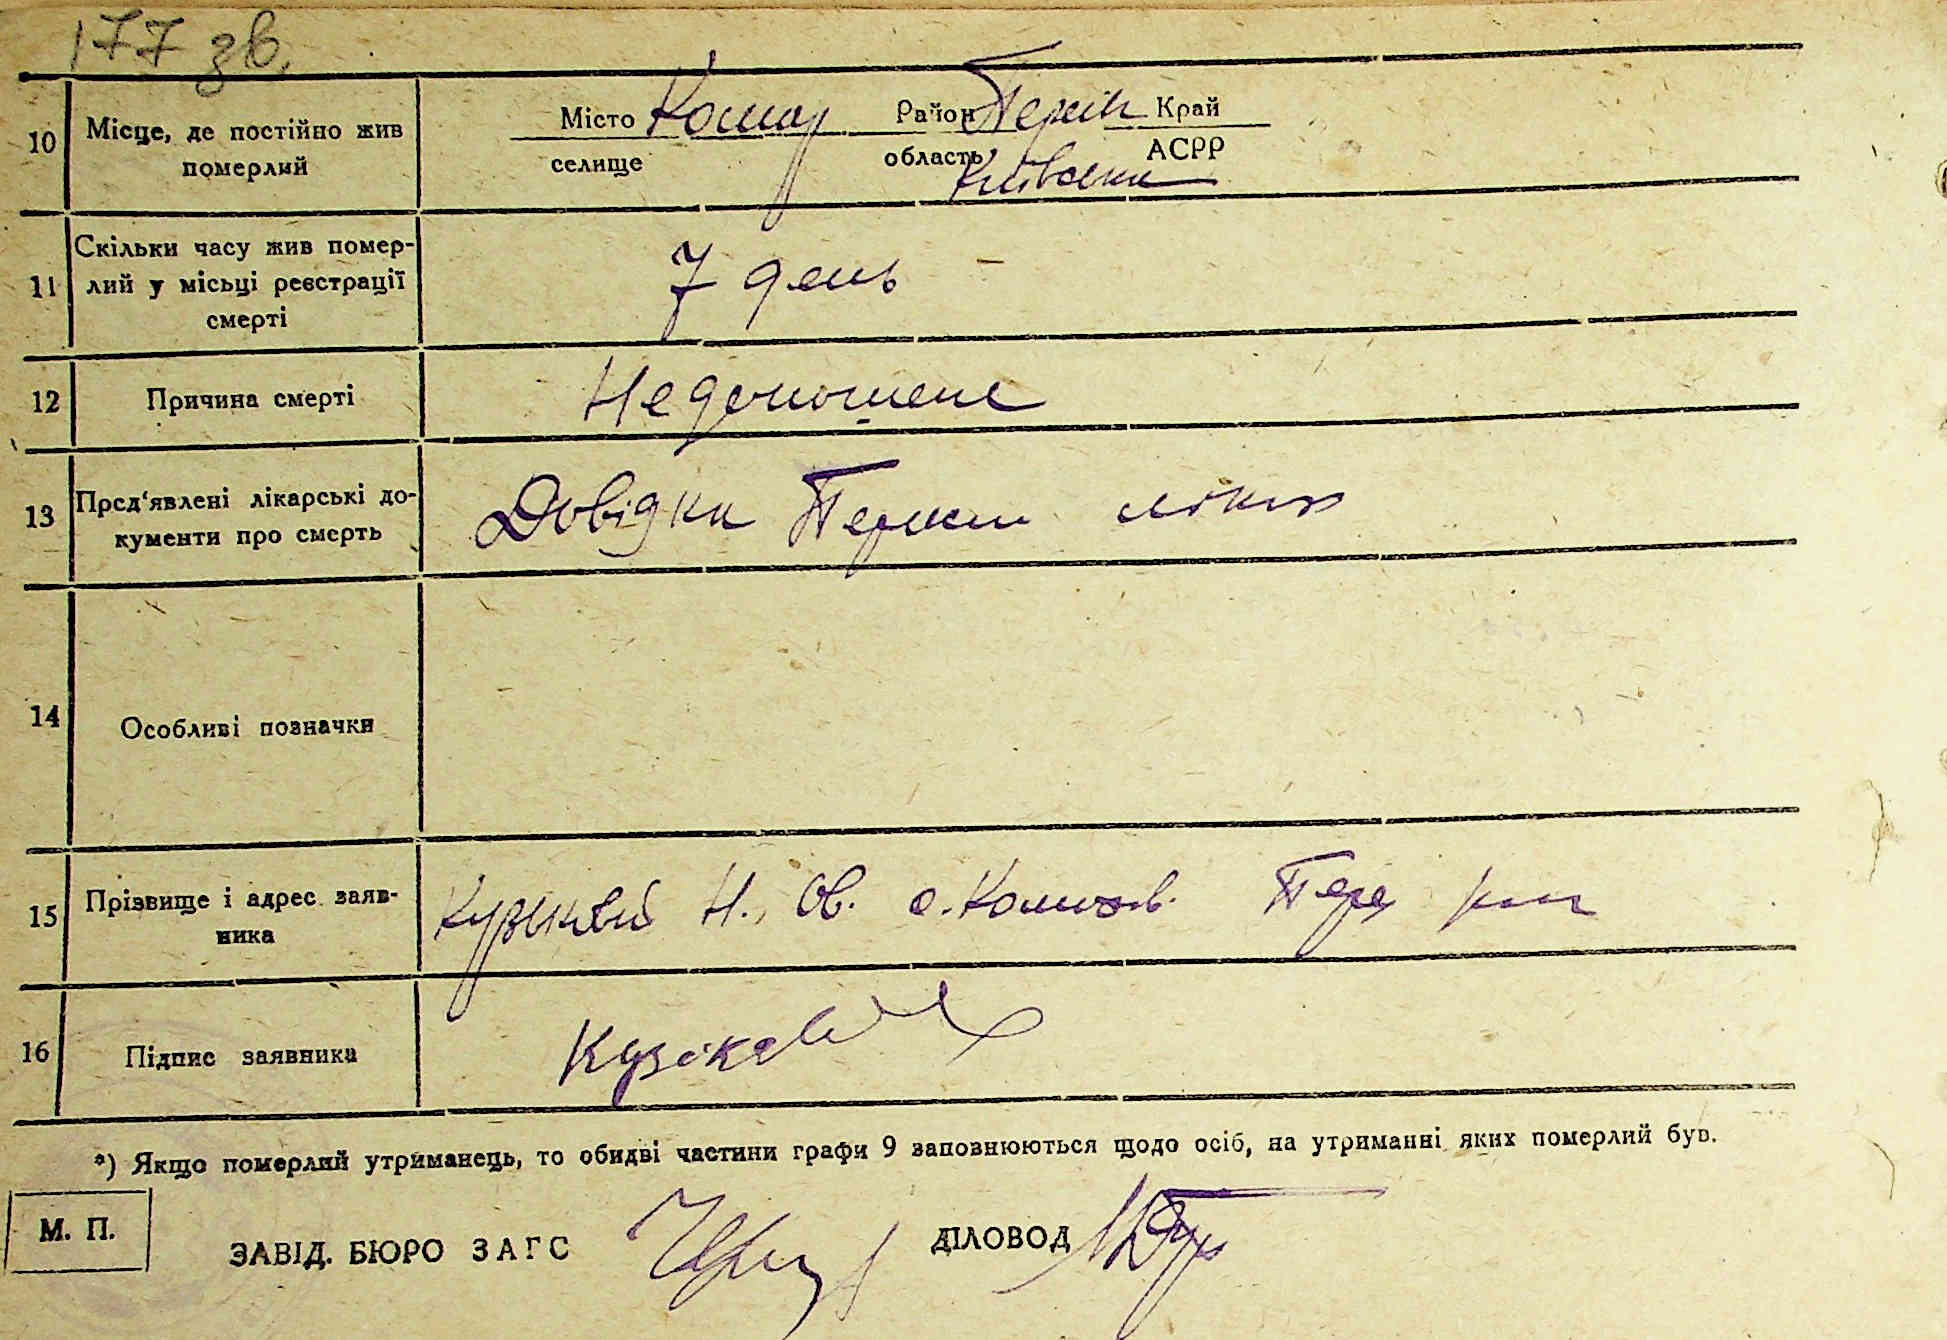 177 зв.
10 Місце, де постійно жив померлий
Місто Район Край
селище область АСРР
Київська
11 Скільки часу жив помер-
лий у місьці реєстрації
смерті
7 день
12 Причина смерті
Недоношене
13 Пред'явлені лікарські до-
кументи про смерть
Довідка
14 Особливі позначки
15 Прізвище і адрес заяв-
ника
Н.
16 Підпис заявника
*) Якщо померлий утриманець, то обидві частини графи 9 заповнюються щодо осіб, на утриманні яких померлий був.
М. П.
ЗАВІД. БЮРО ЗАГС ДІЛОВОД